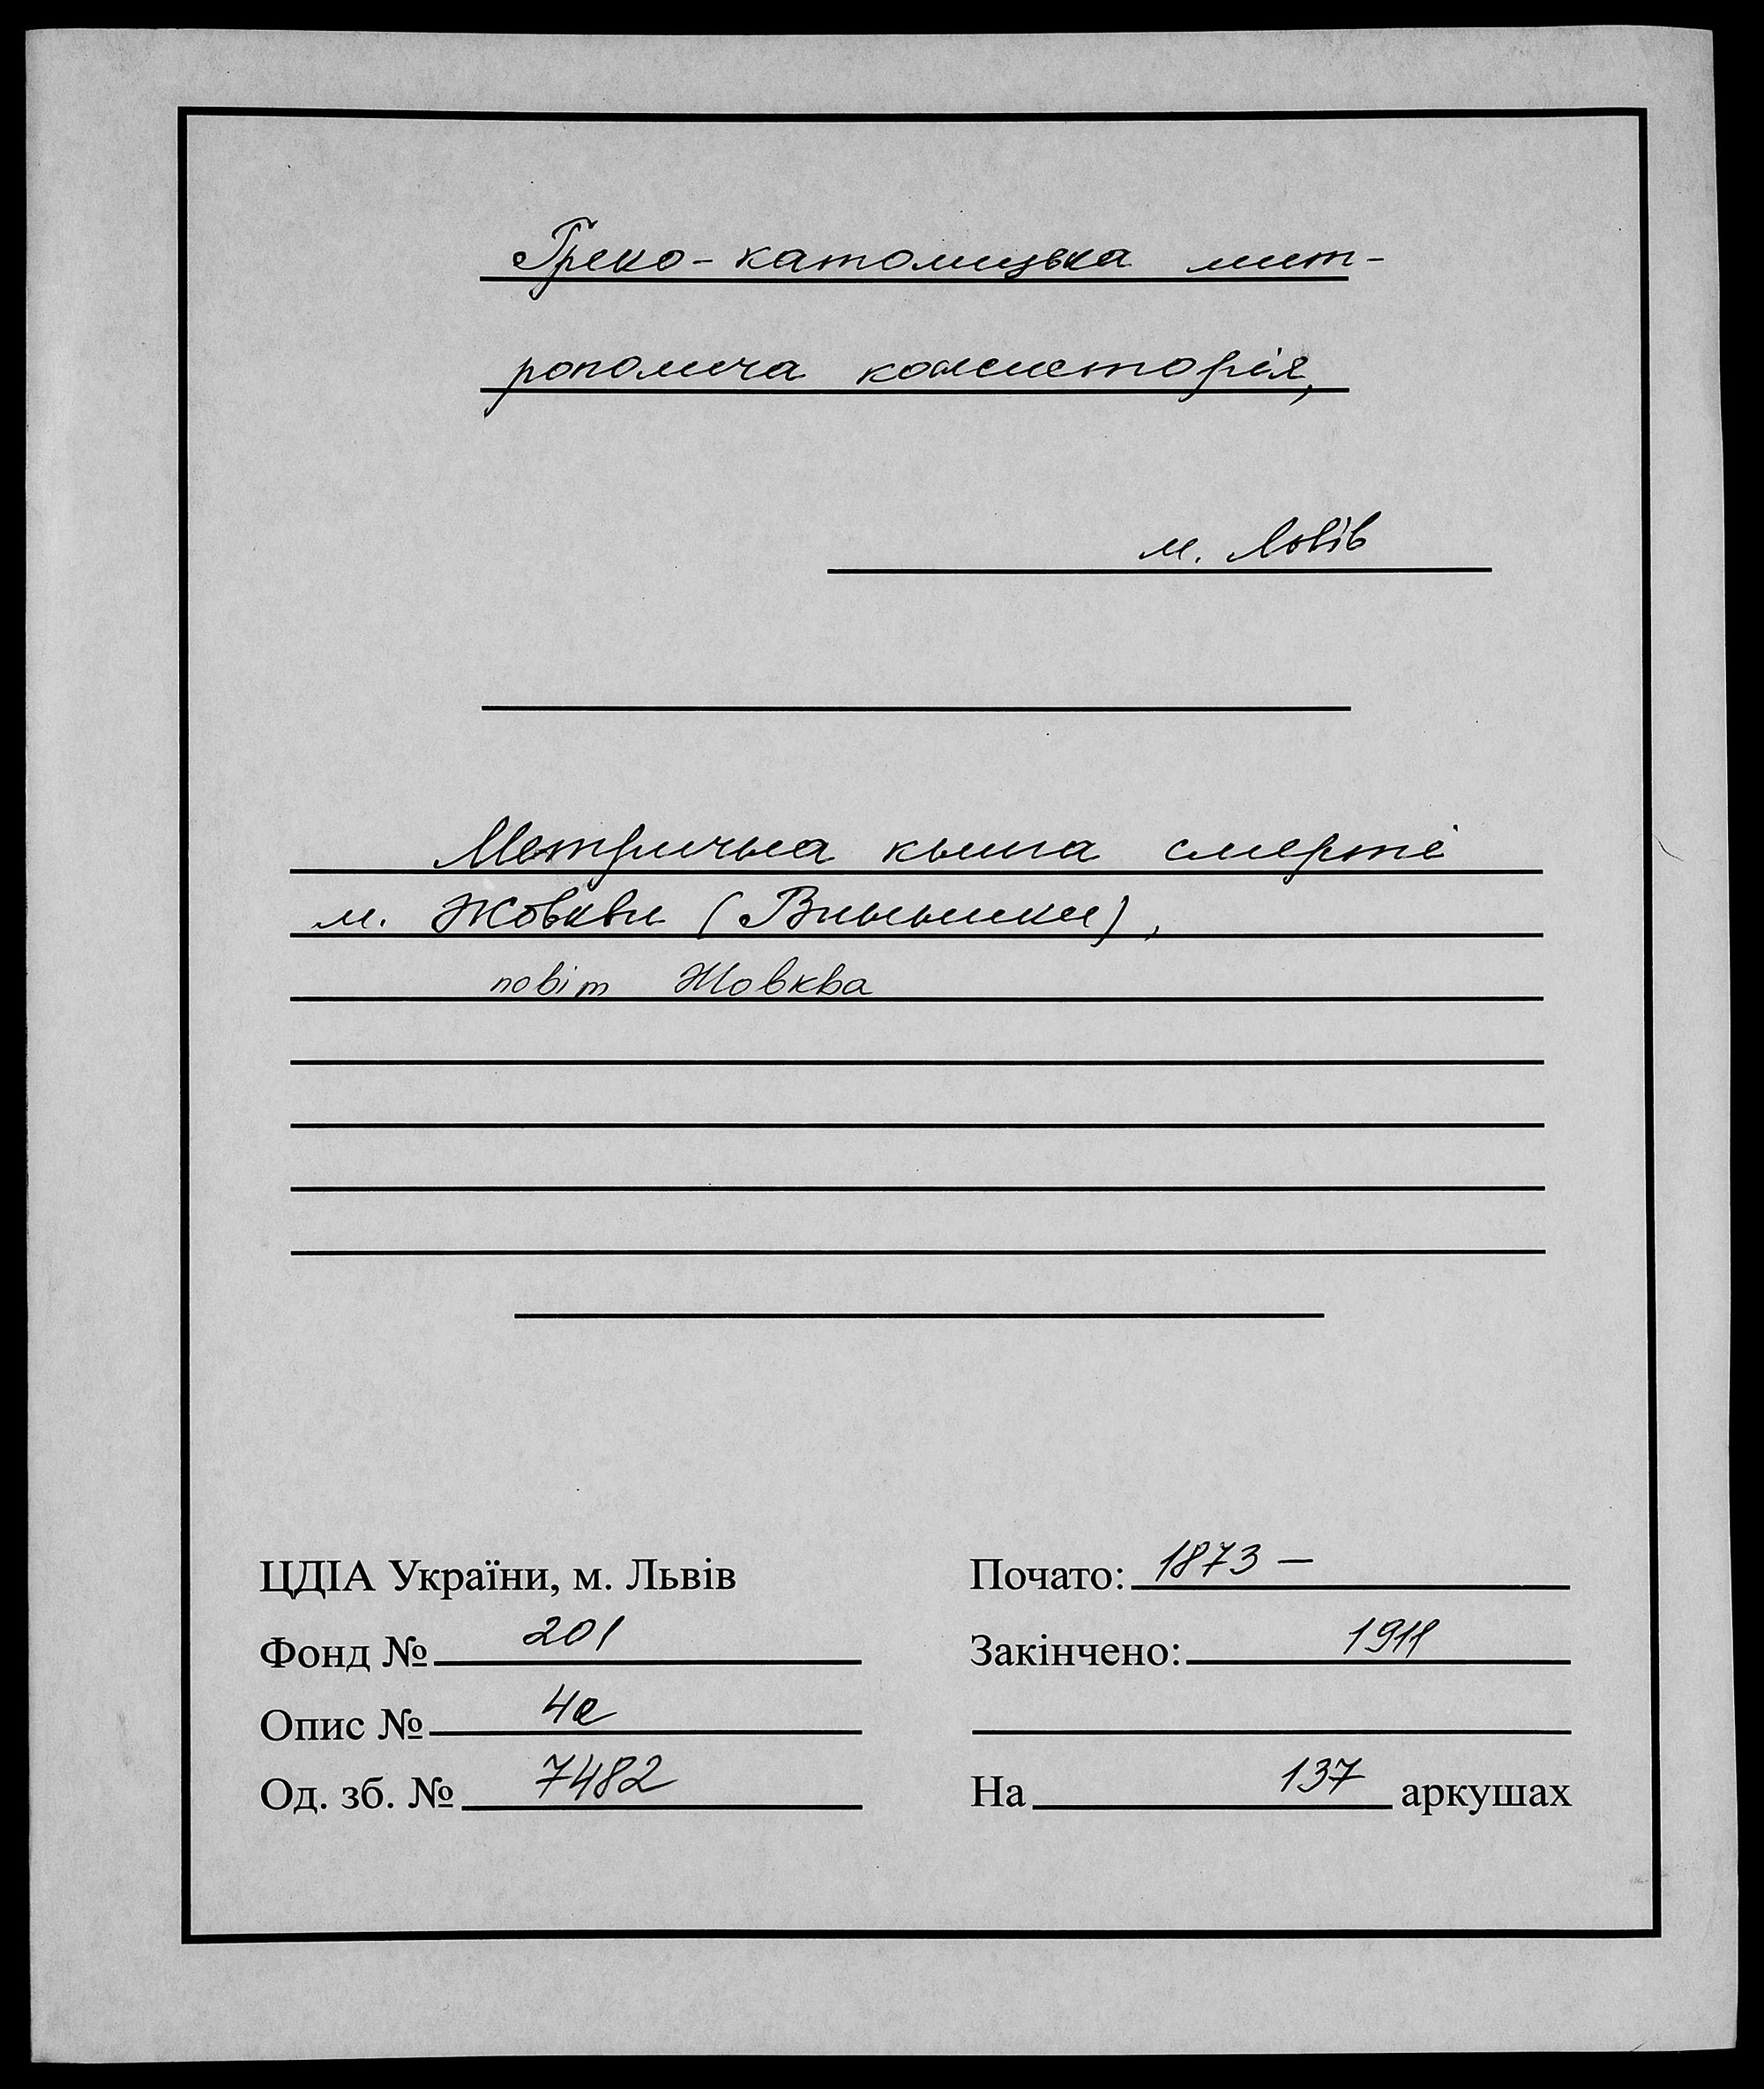 Греко-католицька мит-
рополича консисторія,
м. Львів
Метрична книга смерті
м. Жовкви (Винники),
повіт Жовква
ЦДІА України, м. Львів
Почато: 1873 –
Фонд № 201
Закінчено: 1911
Опис № 4а
Од. зб. № 7482
На 137 аркушах